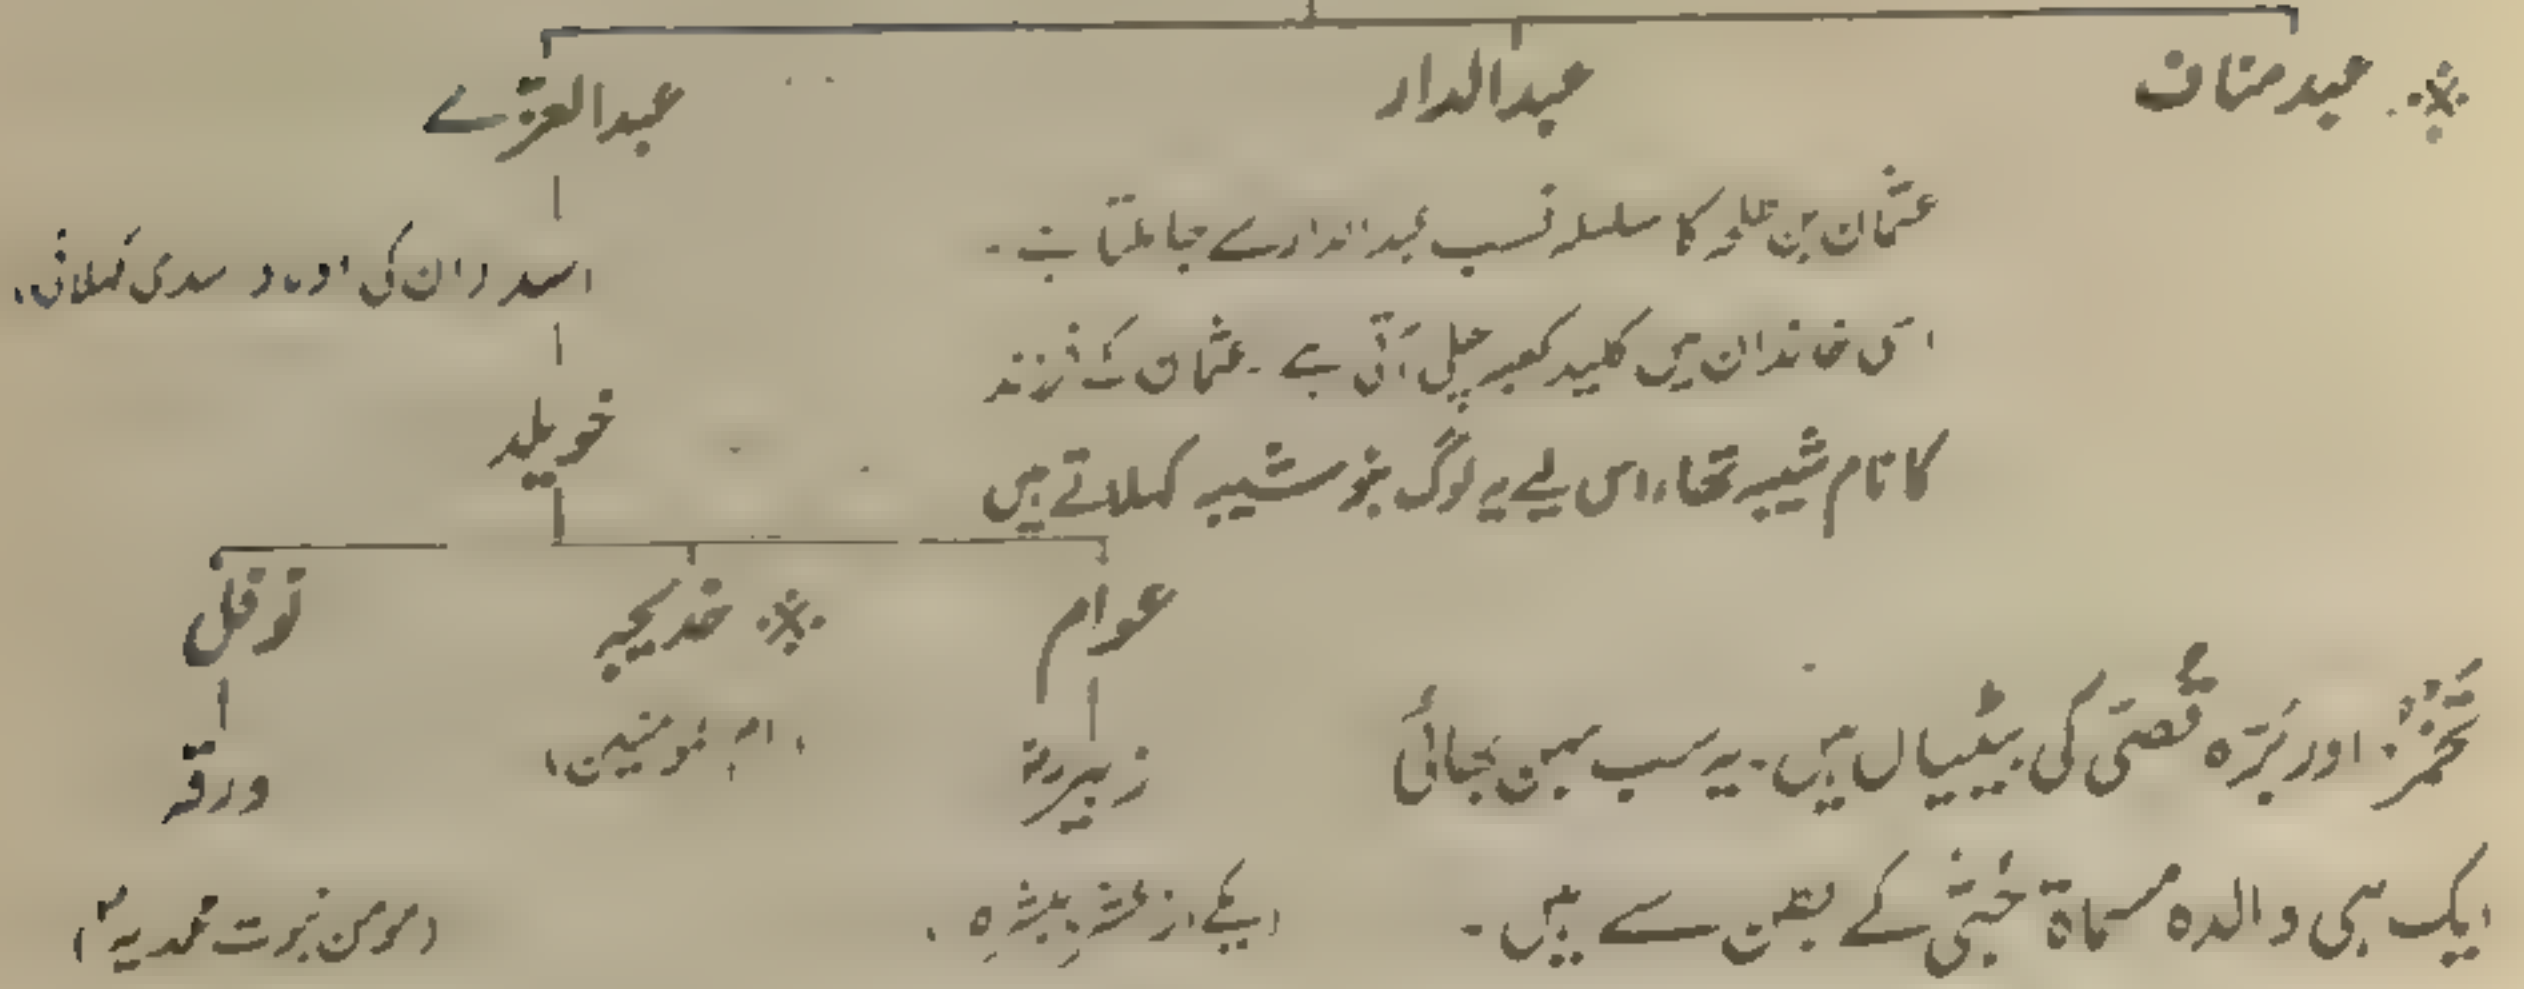 ※ عبد مناف
عبدالدار
عبدالعزّے
عثمان بن طلحہ کا سلسلہ نسب عبدالدار سے جا ملتا ہے۔
اسی خاندان میں کلید کعبہ چلی آتی ہے۔ عثمان کے فرزند
کا نام شیبہ تھا، اس لیے یہ لوگ بنو شیبہ کہلاتے ہیں
اسد (ان کی اولاد اسدی کہلائی)
خویلد
عوام
※ خدیجہ
نوفل
زبیرؓ
(ام المومنین)
ورقہ
(یکے از عشرہ مبشرہ)
(مومن نبوت محمدیہؐ)
تخمر اور برّہ قصّی کی بیٹیاں ہیں۔ یہ سب بہن بھائی
ایک ہی والدہ مسماۃ حُبّیٰ کے بطن سے ہیں۔